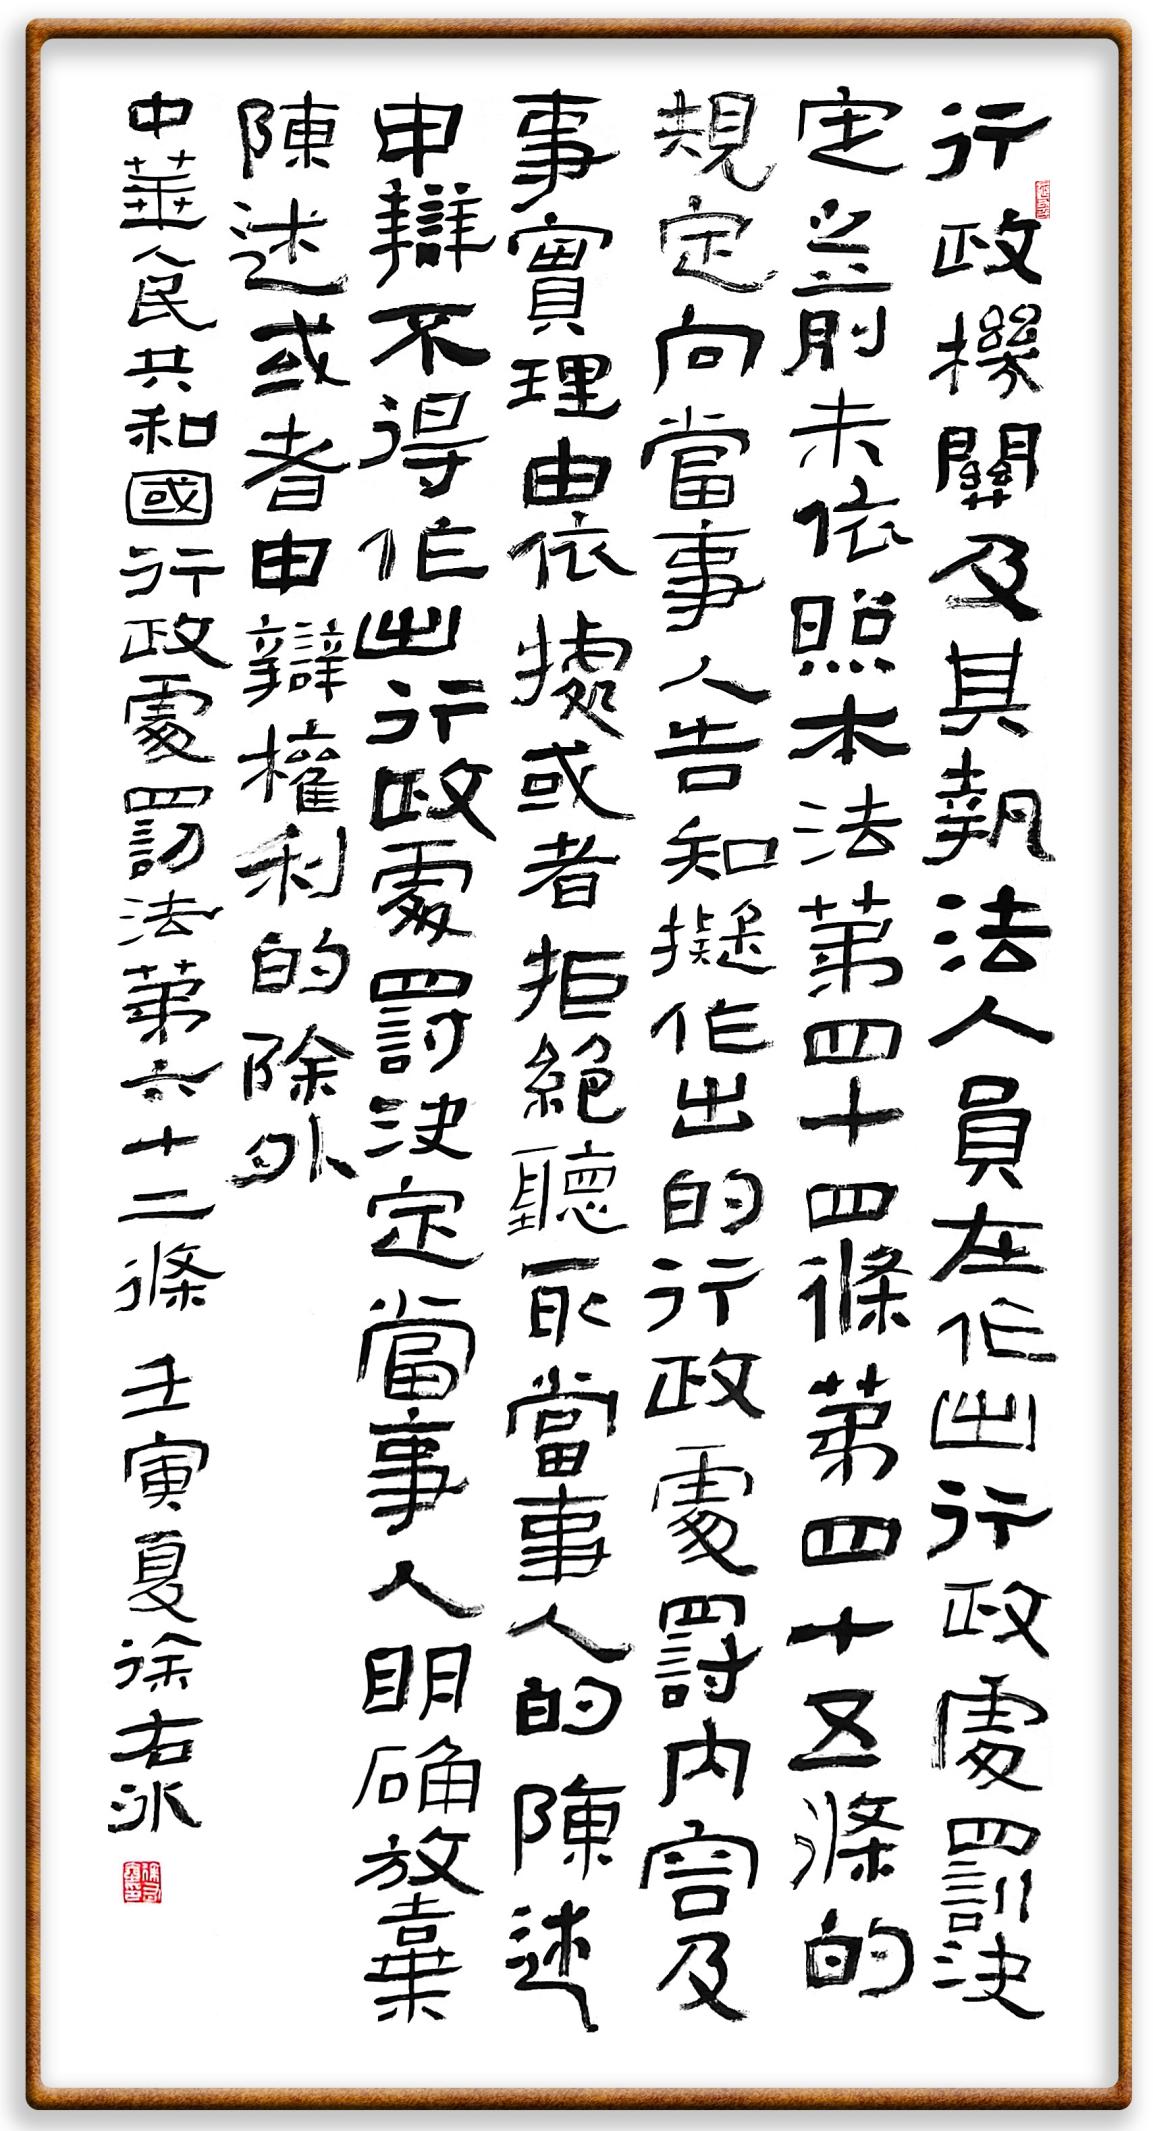 行政機關及其執法人員在作出行政處罰決
定之前未依照本法第四十四條第四十五條的
規定向當事人告知擬作出的行政處罰內容及
事實理由依據或者拒絕聽取當事人的陳述
申辯不得作出行政處罰決定當事人明确放棄
陳述或者申辯權利的除外
中華人民共和國行政處罰法第六十二條 壬寅夏徐右冰